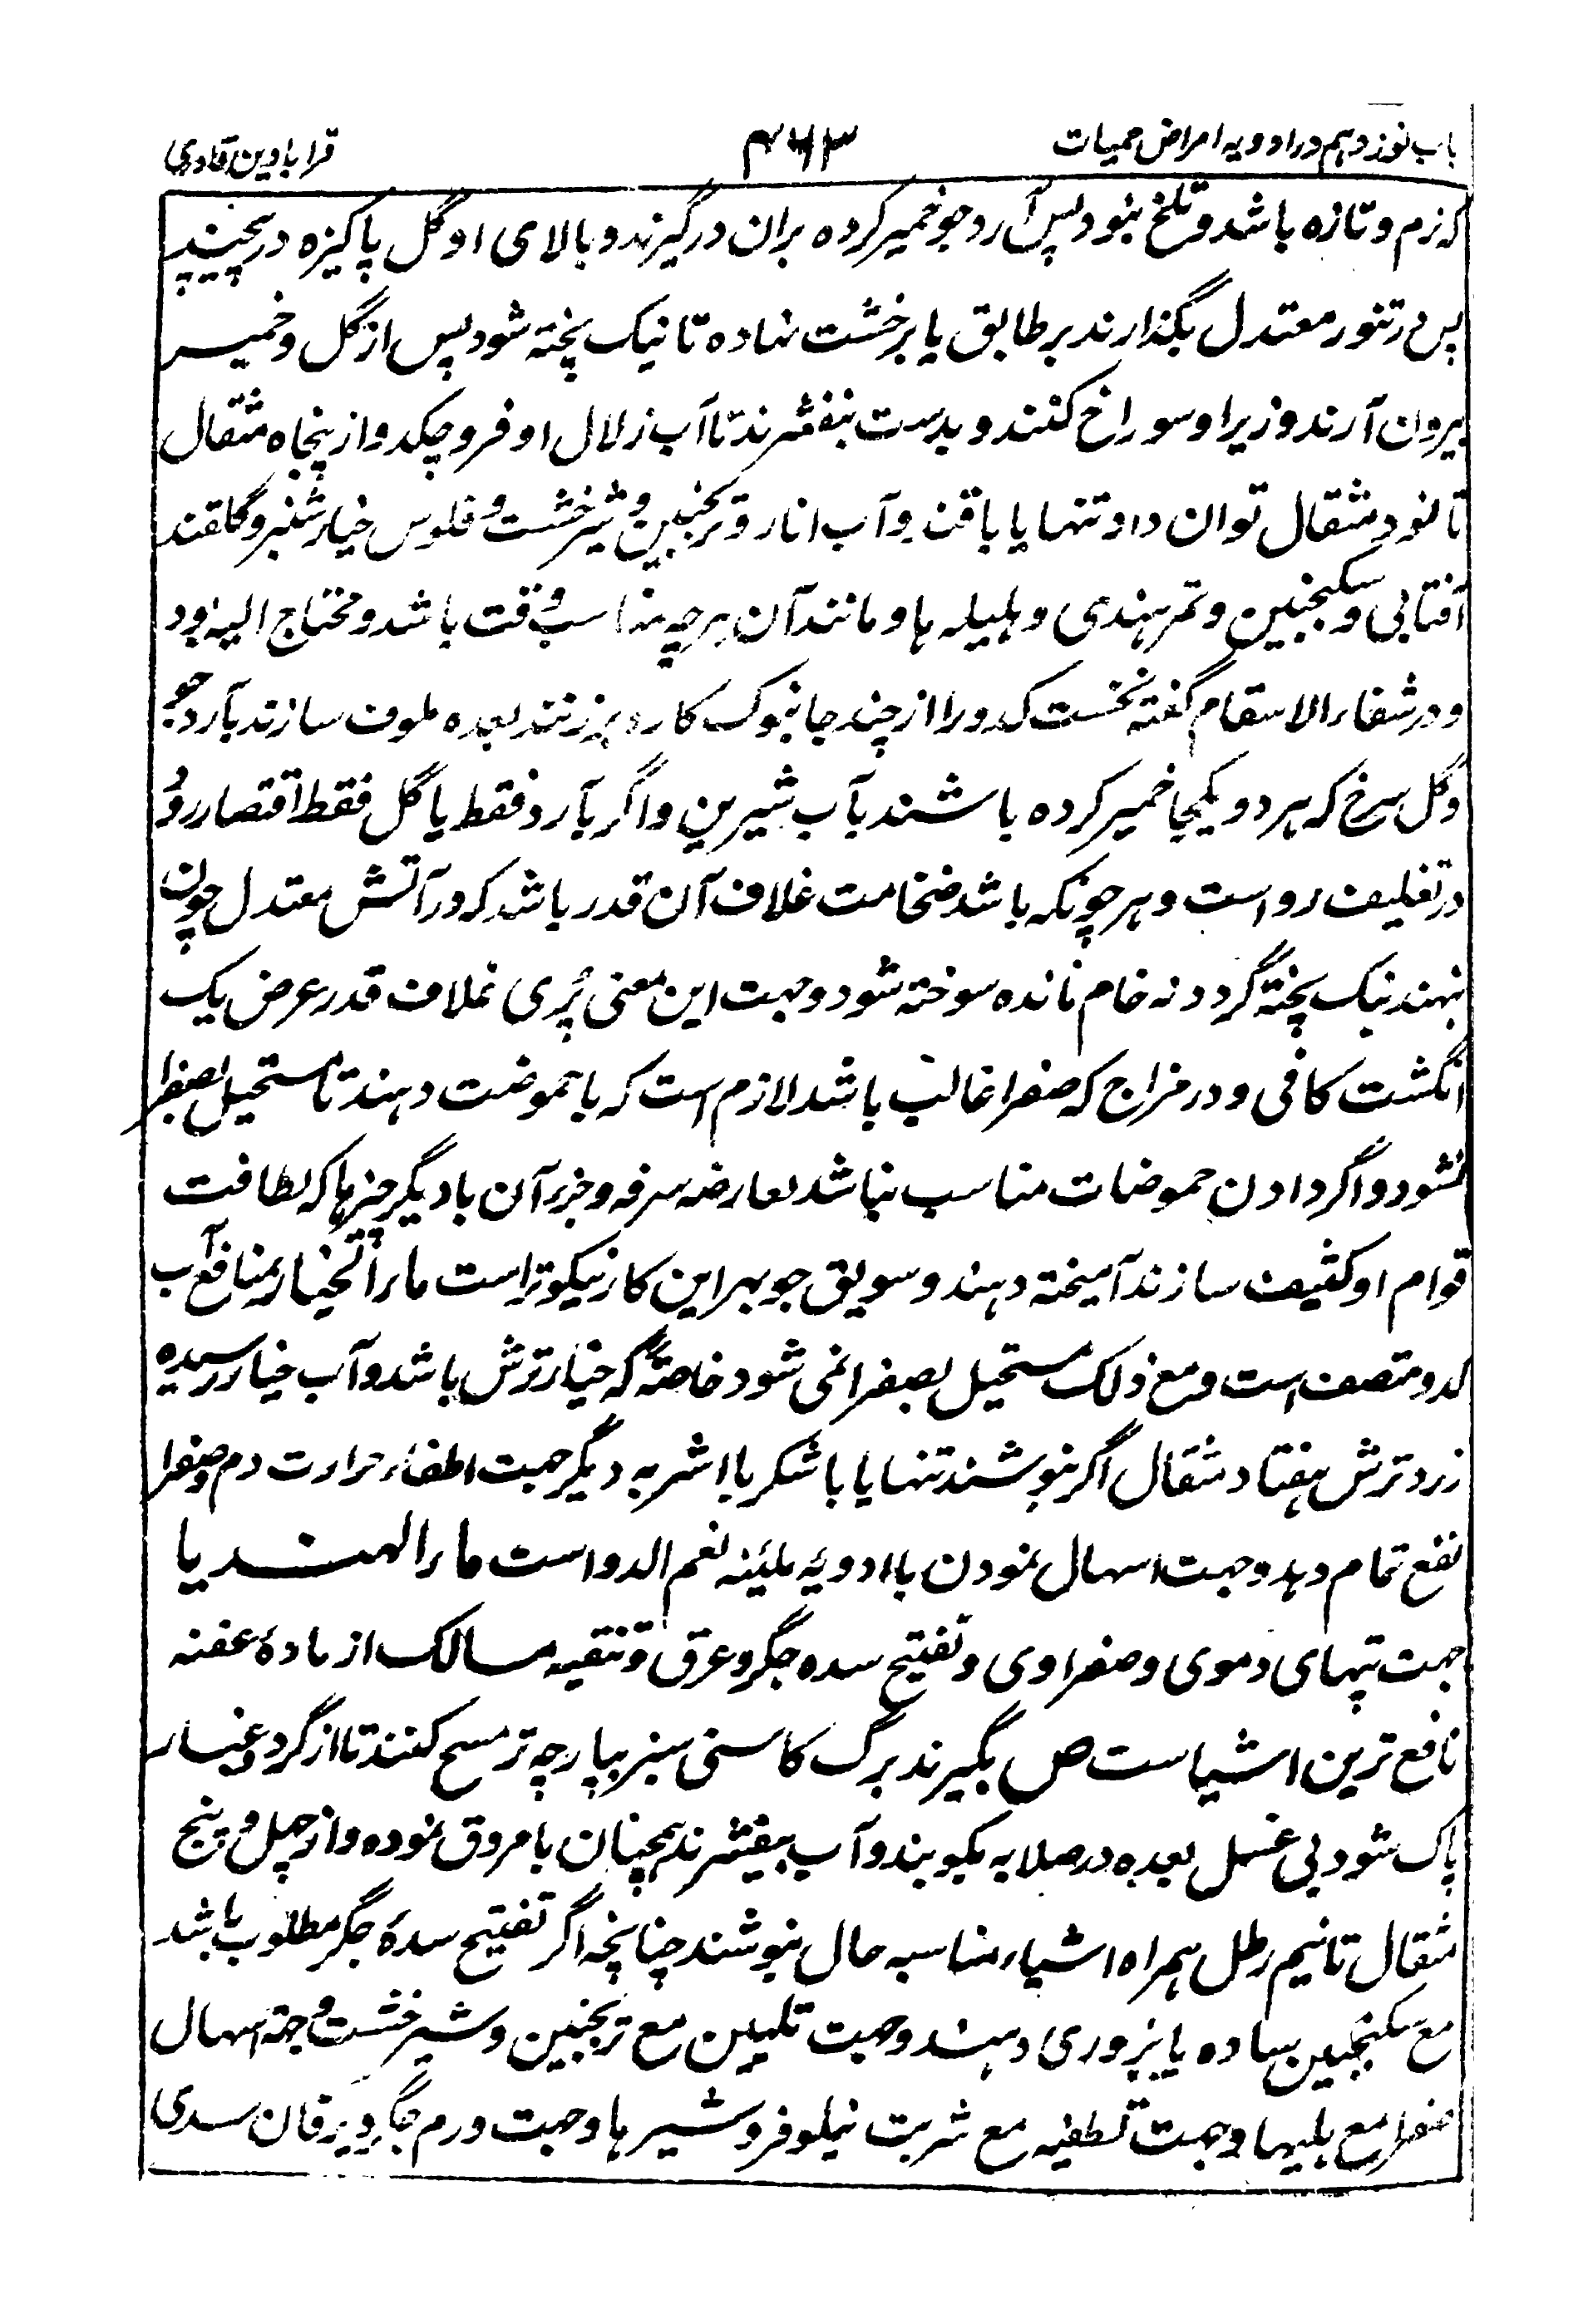 باب نوزدهم در ادویه امراض حمیات
۴۶۳
قرابادین قادری
که نرم و تازه باشد و تلخ نبود پس آرد جو خمیر کرده بران در گیرند و بالای او گل پاکیزه در پیچند
پس در تنور معتدل بگذارند بر طابق یا بر خشت نهاده تا نیک پخته شود پس از گل و خمیر
بیرون آرند و زیر او سوراخ کنند و بدست بیفشرند تا آب زلال او فرو چکد و از پنجاه مثقال
تا نود مثقال توان داد تنها یا با قند و آب انار و ترنجبین و شیرخشت و فلوس خیارشنبر و گلقند
آفتابی و سکنجبین و تمر هندی و هلیله ها و مانند آن هرچه مناسب وقت باشد و محتاج الیه بود
و در شفاء الاسقام گفته نخست کدو را از چند جا بنوک کارد بزنند بعده ملوف سازند بآرد جو
و گل سرخ که هر دو یکجا خمیر کرده باشند بآب شیرین و اگر بآرد فقط یا گل فقط اقتصار رود
در تغلیف رواست و هر چونکه باشد ضخامت غلاف آن قدر باشد که در آتش معتدل چون
نهند نیک پخته گردد نه خام مانده سوخته شود و جهت این معنی پُری غلاف قدر عرض یک
انگشت کافی و در مزاج که صفرا غالب باشد لازم است که با حموضت دهند تا مستحیل بصفرا
نشود و اگر دادن حموضات مناسب نباشد بعارضه سرفه و جز آن با دیگر چیزها که لطافت
قوام او کثیف سازند آمیخته دهند و سویق جو بهر این کار نیکوتر است ماء الخیار بمنافع آب
کدو متصف است و مع ذلک مستحیل بصفرا نمی شود خاصةً که خیار ترش باشد و آب خیار رسیده
زرد ترش هفتاد مثقال اگر بنوشند تنها یا با شکر یا اشربه دیگر جهت اطفاء حرارت دم و صفرا
نفع تمام دهد و جهت اسهال نمودن با ادویه ملینه نعم الدواست ماء الهندبا
جهت تپهای دموی و صفراوی و تفتیح سده جگر و عرق و تنقیه مسالک از مادهٔ عفنه
نافع ترین اشیاست ص بگیرند برگ کاسنی سبز بپارچه تر مسح کنند تا از گرد و غبار
پاک شود بی غسل بعده در صلایه بکوبند و آب بیفشرند همچنان یا مروق نموده و از چهل و پنج
مثقال تا نیم رطل همراه اشیاء مناسبه حال بنوشند چنانچه اگر تفتیح سدهٔ جگر مطلوب باشد
مع سکنجبین ساده یا بزوری دهند و جهت تلیین مع ترنجبین و شیرخشت و جهة اسهال
صفرا مع هلیلها و جهت تطفیه مع شربت نیلوفر و شیرها و جهت ورم جگر و یرقان سدی